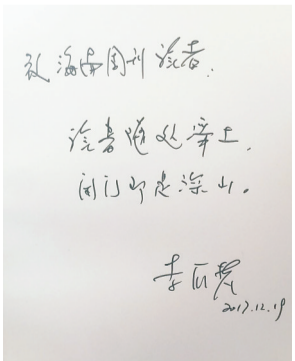 致海南周刊读者：
读书随处净土，
闭门即是深山。
李辰民
2017.12.19